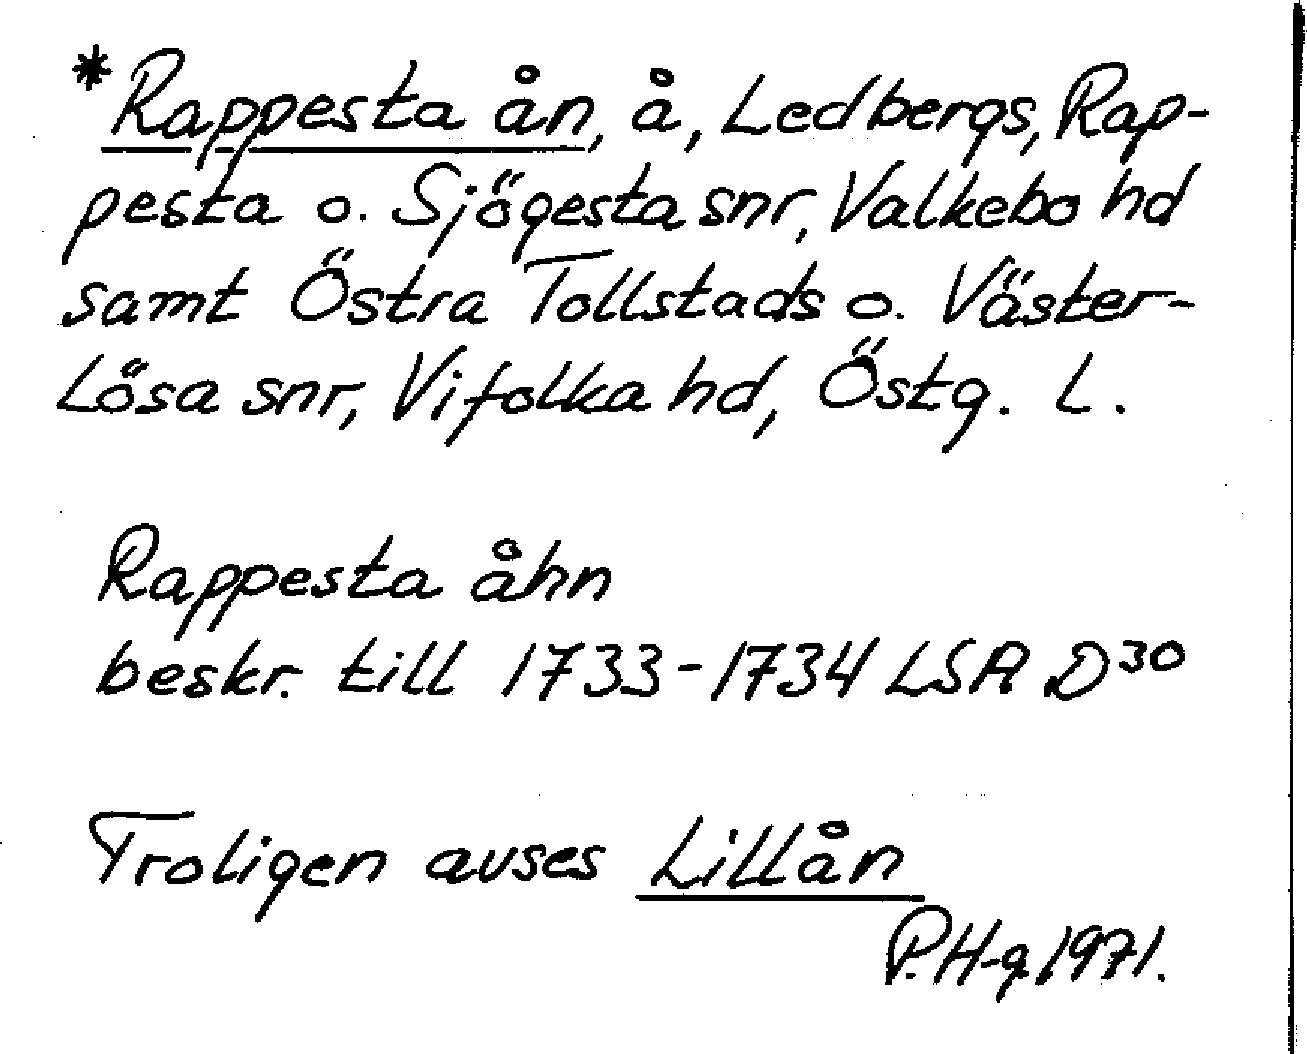 *Rappesta ån, å, Ledbergs, Rap-
pesta o. Sjögesta snr, Valkebo hd
samt Östra Tollstads o. Väster-
Lösa snr, Vifolka hd, Östg. L.
Rappesta åhn
beskr. till 1733-1734 LSA D30
Troligen avses Lillån
P.H-g 1971.